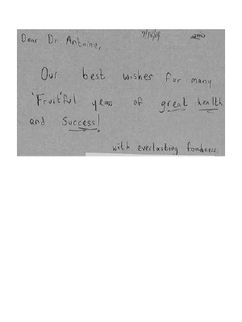 Dear Dr. Antoine,
Our best wishes for many
'Fruit'ful years of great health
and Success!
with everlasting fondness